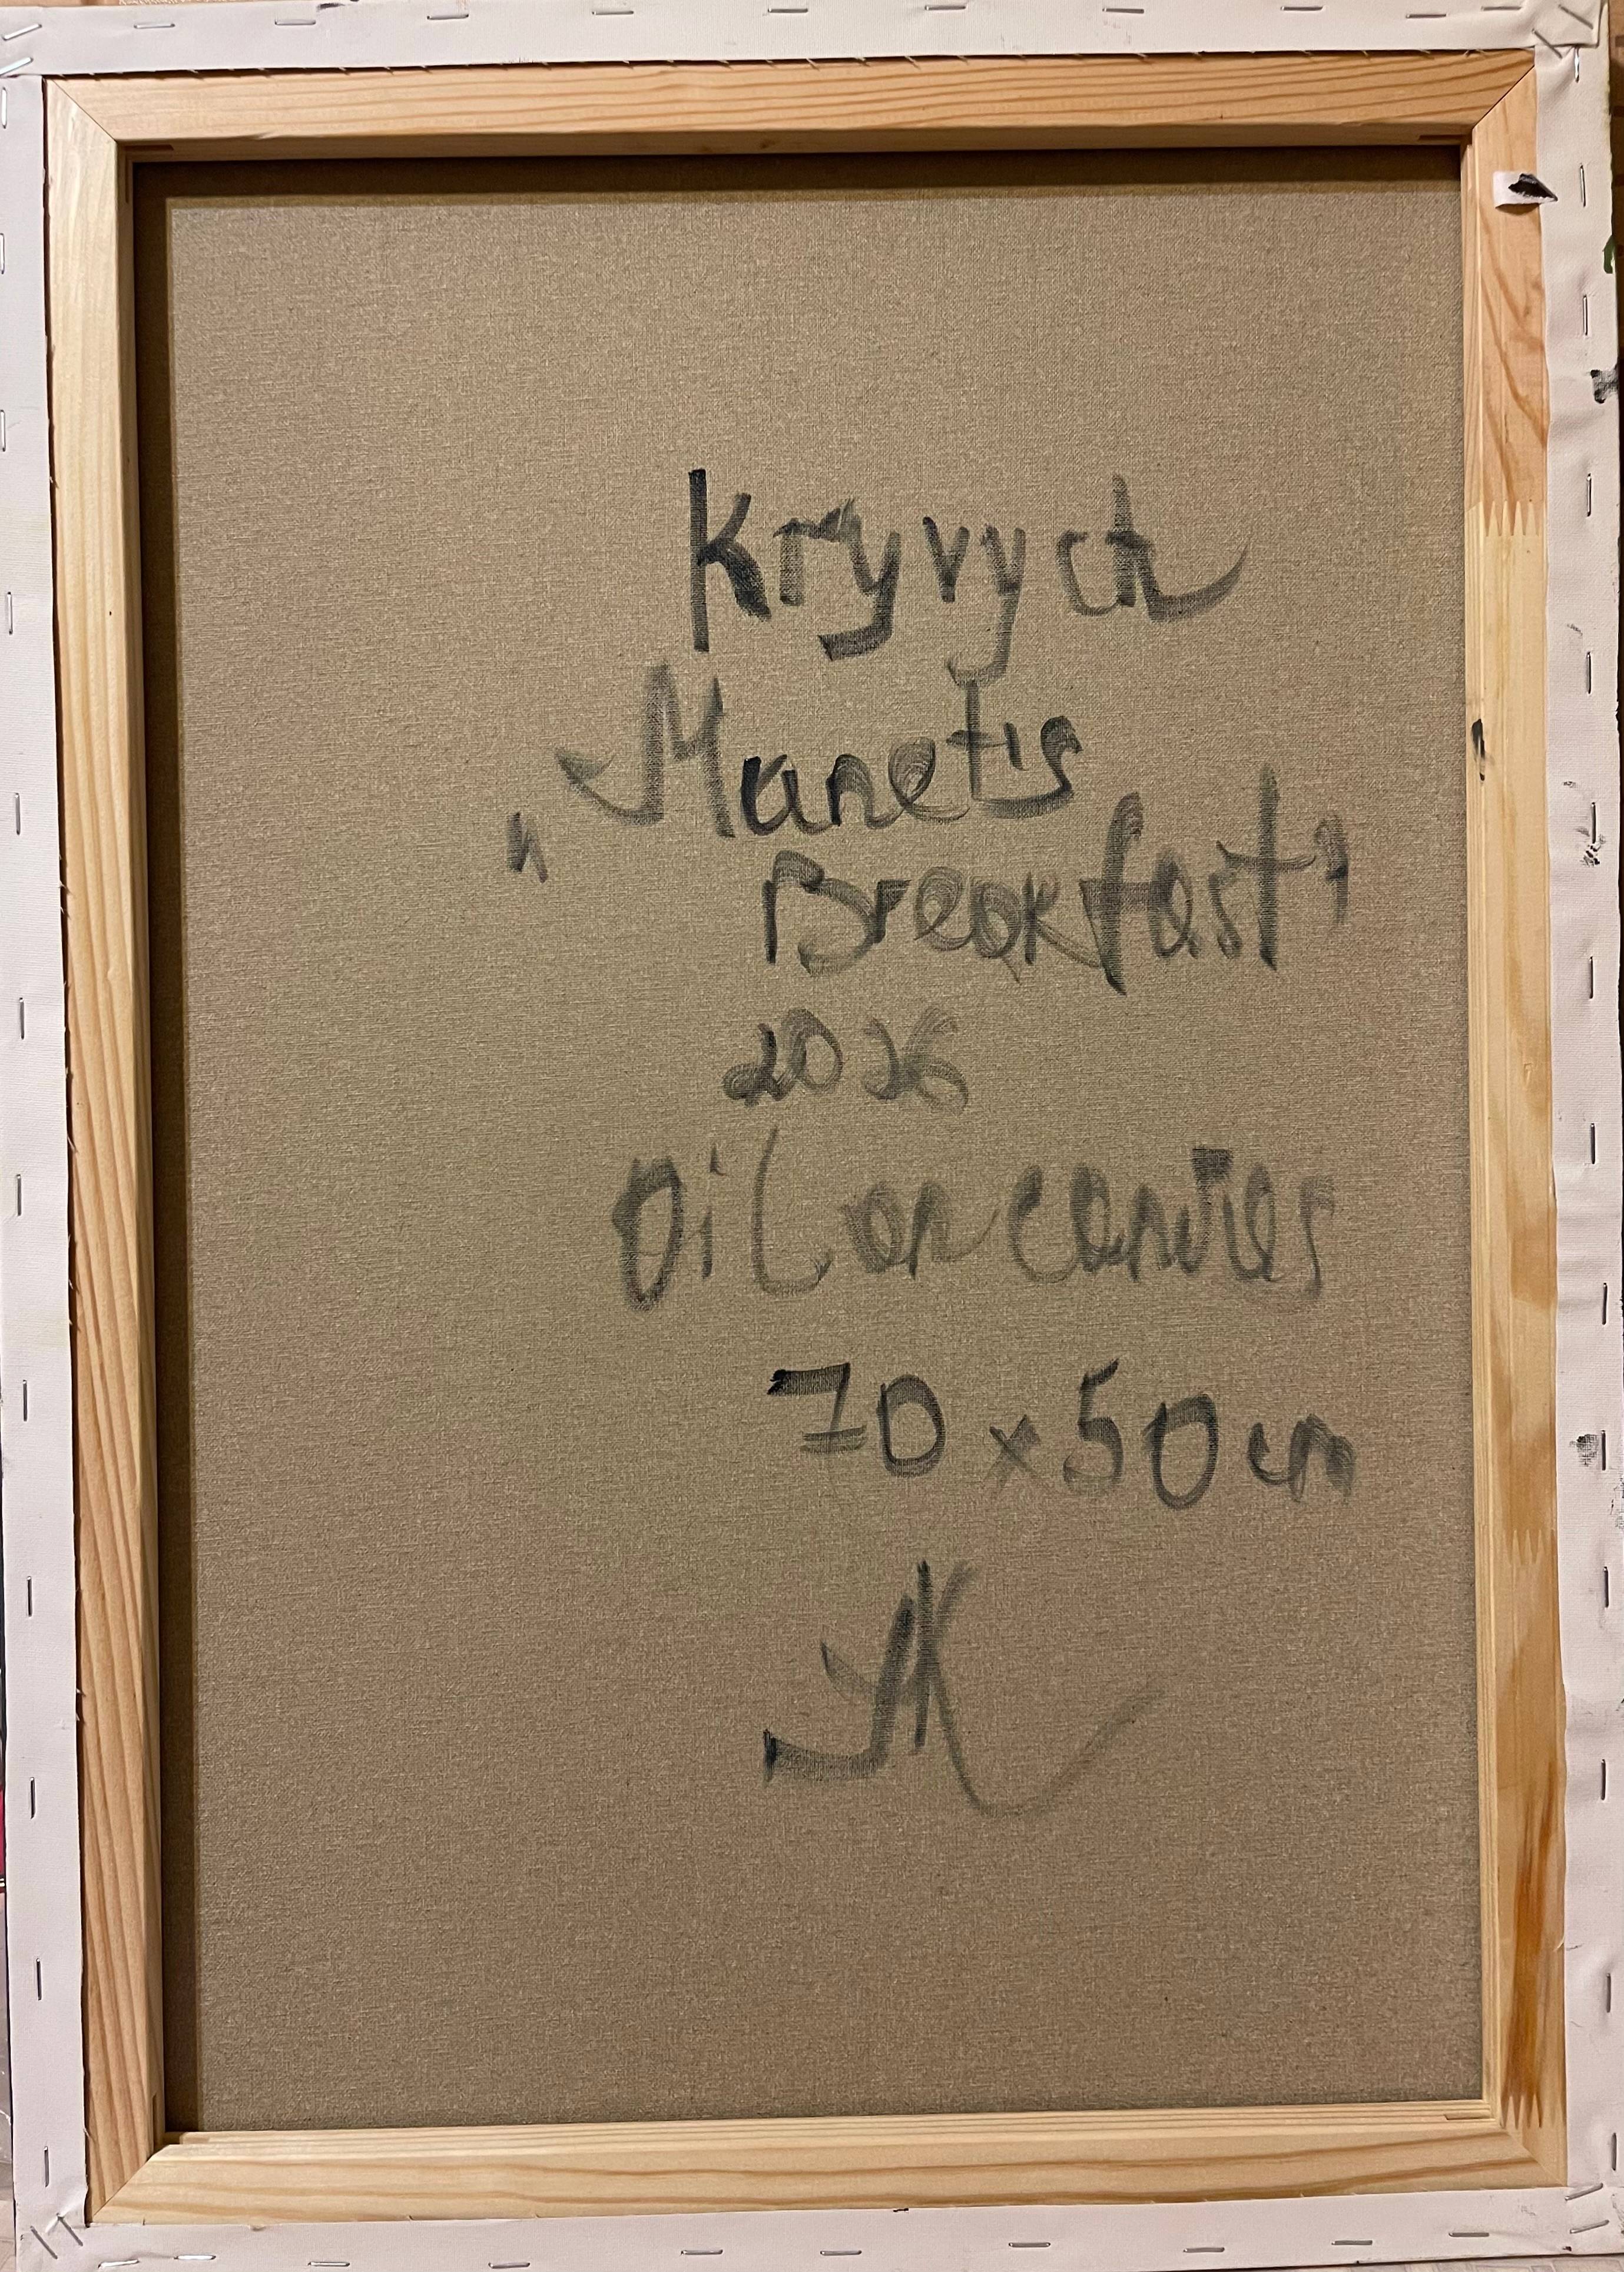 Kryvych
"Manet's
Breakfast"
2026
Oil on canvas
70 x 50 cm